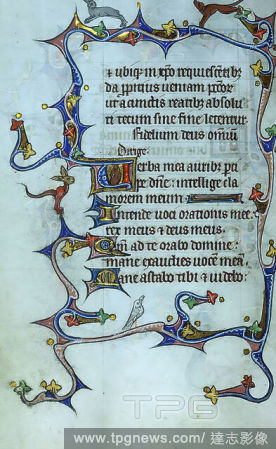 ⁊ ubiq; in xp̄o requiescētibz
da ꝓpitius ueniam pctōꝝ
ut a cunctis reatibz absolu
ti tecum sine fine letentur
Fidelium deus omniū
Dirige.
Verba mea auribz pci
pe dn̄e: intellige cla
morem meum
Intende uoci orationis mee
rex meus ⁊ deus meus.
Qm̄ ad te orabo domine:
mane exaudies uocē meā
Mane astabo tibi ⁊ uidebo:
TPG
www.tpgnews.com/ 達志影像